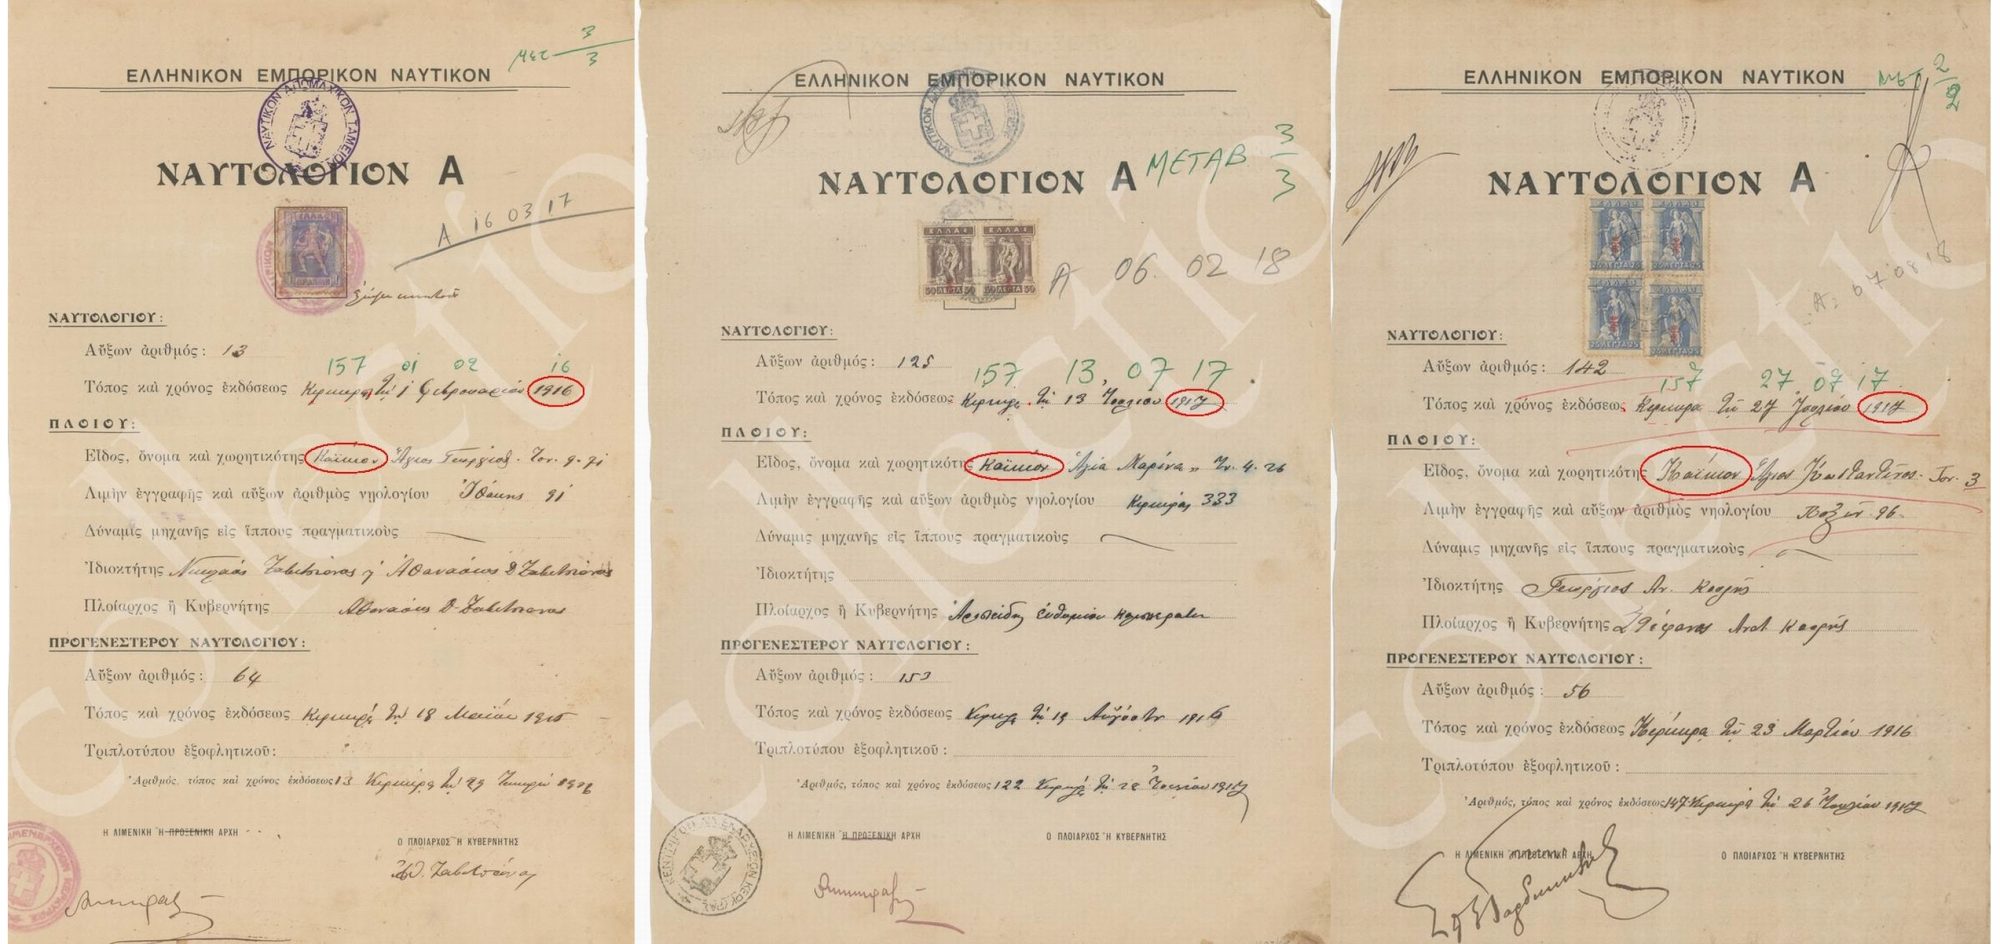 ΜΕΤ 3/3
ΕΛΛΗΝΙΚΟΝ ΕΜΠΟΡΙΚΟΝ ΝΑΥΤΙΚΟΝ
ΝΑΥΤΙΚΟΝ ΑΠΟΜΑΧΙΚΟΝ ΤΑΜΕΙΟΝ
ΝΑΥΤΟΛΟΓΙΟΝ Α
Α 16 03 17
ΝΑΥΤΟΛΟΓΙΟΥ:
Αὔξων ἀριθμός: 13
157 01 02 16
Τόπος καὶ χρόνος ἐκδόσεως Κέρκυρα τῇ 1 Φεβρουαρίου 1916
ΠΛΟΙΟΥ:
Εἶδος, ὄνομα καὶ χωρητικότης Καΐκιον Ἅγιος Γεώργιος
Λιμὴν ἐγγραφῆς καὶ αὔξων ἀριθμὸς νηολογίου Ἰθάκης 91
Δύναμις μηχανῆς εἰς ἵππους πραγματικοὺς
Ἰδιοκτήτης
Πλοίαρχος ἢ Κυβερνήτης
ΠΡΟΓΕΝΕΣΤΕΡΟΥ ΝΑΥΤΟΛΟΓΙΟΥ:
Αὔξων ἀριθμός: 64
Τόπος καὶ χρόνος ἐκδόσεως Κέρκυρα τῇ 18 Μαΐου 1915
Τριπλοτύπου ἐξοφλητικοῦ:
Ἀριθμός, τόπος καὶ χρόνος ἐκδόσεως 13 Κέρκυρα τῇ 29
Η ΛΙΜΕΝΙΚΗ Ἢ ΠΡΟΞΕΝΙΚΗ ΑΡΧΗ
Ο ΠΛΟΙΑΡΧΟΣ Ἢ ΚΥΒΕΡΝΗΤΗΣ
ΕΛΛΗΝΙΚΟΝ ΕΜΠΟΡΙΚΟΝ ΝΑΥΤΙΚΟΝ
ΜΕΤΑΒ 3/3
ΝΑΥΤΟΛΟΓΙΟΝ Α
ΕΛΛΑΣ ΕΛΛΑΣ
50 ΛΕΠΤΑ 50 50 ΛΕΠΤΑ 50
Α 06 02 18
ΝΑΥΤΟΛΟΓΙΟΥ:
Αὔξων ἀριθμός: 125
157 13 07 17
Τόπος καὶ χρόνος ἐκδόσεως Κέρκυρα τῇ 13 Ἰουλίου 1917
ΠΛΟΙΟΥ:
Εἶδος, ὄνομα καὶ χωρητικότης Καΐκιον Ἁγία Μαρίνα 4.26
Λιμὴν ἐγγραφῆς καὶ αὔξων ἀριθμὸς νηολογίου Κερκύρας 333
Δύναμις μηχανῆς εἰς ἵππους πραγματικοὺς
Ἰδιοκτήτης
Πλοίαρχος ἢ Κυβερνήτης
ΠΡΟΓΕΝΕΣΤΕΡΟΥ ΝΑΥΤΟΛΟΓΙΟΥ:
Αὔξων ἀριθμός: 153
Τόπος καὶ χρόνος ἐκδόσεως Κέρκυρα τῇ 19 Αὐγούστου 1916
Τριπλοτύπου ἐξοφλητικοῦ:
Ἀριθμός, τόπος καὶ χρόνος ἐκδόσεως 122 Κέρκυρα τῇ 12 Ἰουλίου 1917
Η ΛΙΜΕΝΙΚΗ Ἢ ΠΡΟΞΕΝΙΚΗ ΑΡΧΗ
Ο ΠΛΟΙΑΡΧΟΣ Ἢ ΚΥΒΕΡΝΗΤΗΣ
ΕΛΛΗΝΙΚΟΝ ΕΜΠΟΡΙΚΟΝ ΝΑΥΤΙΚΟΝ
2/2
ΝΑΥΤΟΛΟΓΙΟΝ Α
ΕΛΛΑΣ ΕΛΛΑΣ
25 ΛΕΠΤΑ 25 25 ΛΕΠΤΑ 25
Α 07 08 18
ΝΑΥΤΟΛΟΓΙΟΥ:
Αὔξων ἀριθμός: 142
157 27 07 17
Τόπος καὶ χρόνος ἐκδόσεως Κέρκυρα τῇ 27 Ἰουλίου 1917
ΠΛΟΙΟΥ:
Εἶδος, ὄνομα καὶ χωρητικότης Καΐκιον Ἅγιος Κωσταντῖνος Τον. 3
Λιμὴν ἐγγραφῆς καὶ αὔξων ἀριθμὸς νηολογίου Παξῶν 96
Δύναμις μηχανῆς εἰς ἵππους πραγματικοὺς
Ἰδιοκτήτης Γεώργιος
Πλοίαρχος ἢ Κυβερνήτης
ΠΡΟΓΕΝΕΣΤΕΡΟΥ ΝΑΥΤΟΛΟΓΙΟΥ:
Αὔξων ἀριθμός: 56
Τόπος καὶ χρόνος ἐκδόσεως Κέρκυρα τῇ 23 Μαρτίου 1916
Τριπλοτύπου ἐξοφλητικοῦ:
Ἀριθμός, τόπος καὶ χρόνος ἐκδόσεως 147 Κέρκυρα τῇ 26 Ἰουλίου 1917
Η ΛΙΜΕΝΙΚΗ Ἢ ΠΡΟΞΕΝΙΚΗ ΑΡΧΗ
Ο ΠΛΟΙΑΡΧΟΣ Ἢ ΚΥΒΕΡΝΗΤΗΣ
collectio
collectio
collectio